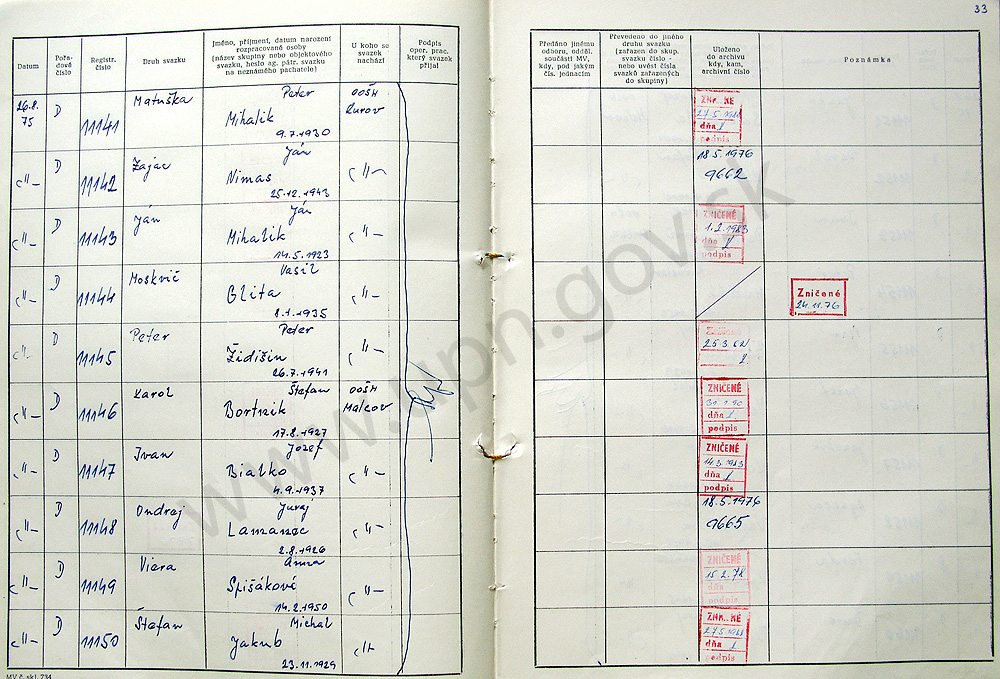 33
Datum
Pořa-
dové
číslo
Registr.
číslo
Druh svazku
Jméno, příjmení, datum narození
rozpracované osoby
(název skupiny nebo objektového
svazku, heslo ag. pátr. svazku
na neznámého pachatele)
U koho se
svazek
nachází
Podpis
oper. prac.
který svazek
přijal
Předáno jinému
odboru, odděl.
součásti MV,
kdy, pod jakým
čís. jednacím
Převedeno do jiného
druhu svazku
(zařazen do skup.
svazku číslo -
nebo uvést čísla
svazků zařazených
do skupiny)
Uloženo
do archivu
kdy, kam,
archivní číslo
Poznámka
26.8.
75
D
11141
Matuška
Peter
Mihalik
9.7.1930
OOŠH
27.5
dňa
podpis
D
11142
Zajac
Ján
Nimas
25.12.1943
18.5.1976
9662
D
11143
Ján
Ján
Mihalik
14.5.1923
ZNIČENÉ
1.2.1983
dňa
podpis
D
11144
Moskvič
Vasil
Glita
8.1.1935
Zničené
24.11.76
D
11145
Peter
Peter
Židišin
26.7.1941
D
11146
Karol
Štefan
Bortnik
17.8.1927
OOŠH
Malcov
ZNIČENÉ
dňa
podpis
D
11147
Ivan
Jozef
Bialko
4.9.1937
ZNIČENÉ
14.3.1983
dňa
podpis
D
11148
Ondrej
Juraj
Lamanec
2.8.1926
18.5.1976
9665
D
11149
Viera
Anna
Spišáková
14.2.1950
ZNIČENÉ
15.2.78
dňa
podpis
D
11150
Štefan
Michal
Jakub
23.11.1929
27.5
dňa
podpis
MV č. skl. 734
www.upn.gov.sk